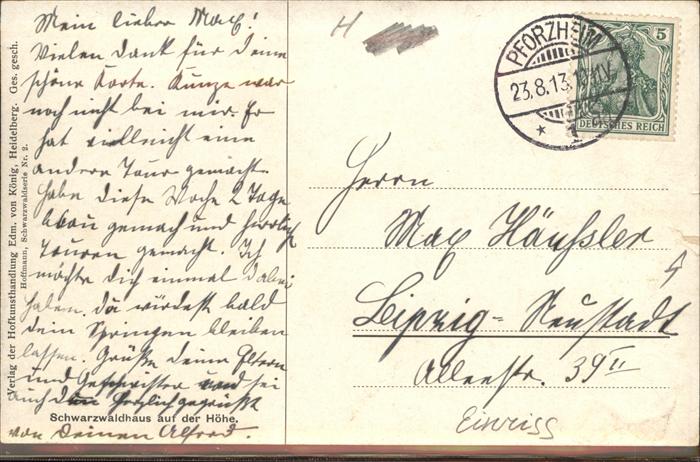 Mein lieber Max!
Vielen Dank für Deine
schöne Karte. Kunze war
noch nicht bei mir. Er
hat vielleicht eine
andere Tour gemacht.
Habe diese Woche 2 Tage
blau gemacht und herrliche
Touren gemacht. Ich
möchte Dich einmal dabei
haben, da würdest bald
dein Springen bleiben
lassen. Grüße deine Eltern
und Geschwister und sei
auch Du herzlich gegrüßt
von Deinem Alfred.
Schwarzwaldhaus auf der Höhe.
Verlag der Hofkunsthandlung Edm. von König, Heidelberg. Ges. gesch.
Hoffmann, Schwarzwaldserie Nr. 2.
H
PFORZHEIM
23.8.13.
* 1
5
DEUTSCHES REICH
Herrn
Max Häußler
Leipzig-Neustadt
Alleestr. 39 II
Einriss